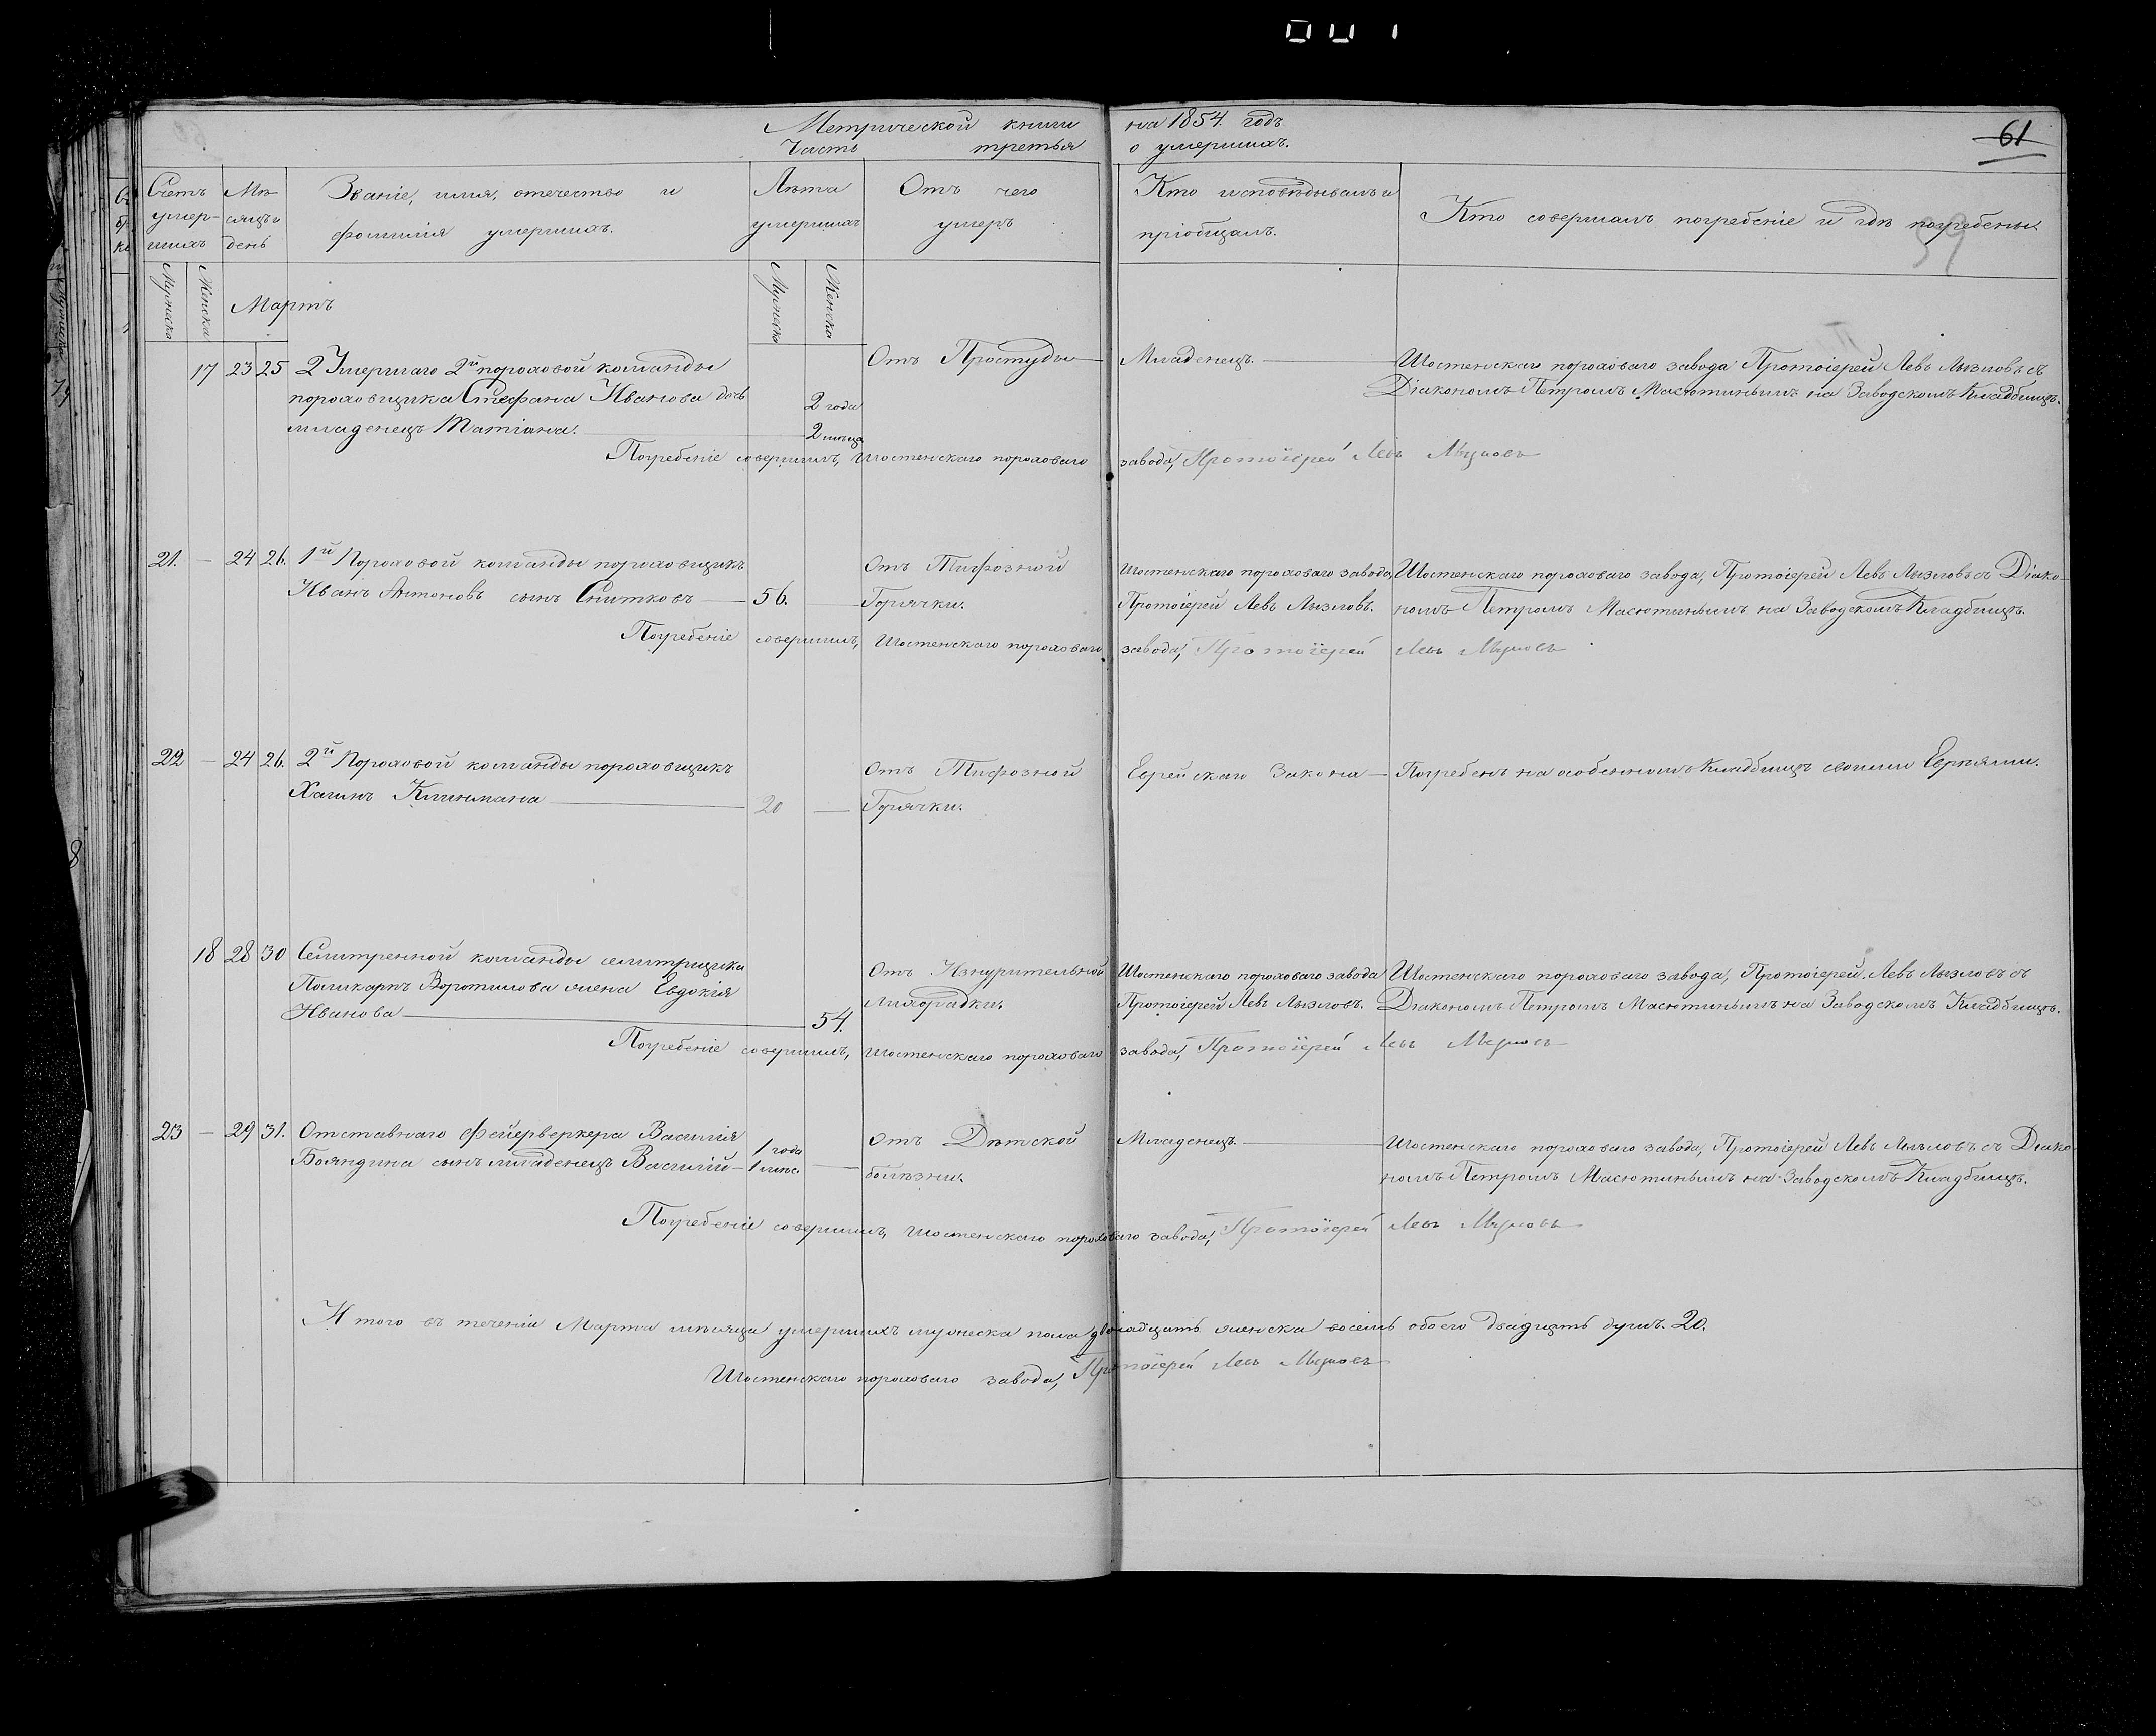 001
Метрической книги на 1854. годъ.
Часть третья о умершихъ.
61
Счетъ умер-шихъ
Мѣ-сяцъ и день
Званіе, имя, отечество и фамилія умершихъ.
Лѣта умершихъ
Отъ чего умеръ
Кто исповѣдывалъ и пріобщалъ.
Кто совершалъ погребеніе и гдѣ погребены.
59
Мужеска Женска
Мартъ
Мужеска Женска
17 23 25 Умершаго 2й пороховой команды Отъ Простуды Младенецъ. Шостенскаго пороховаго завода Протоіерей Левъ Лызловъ съ
пороховщика Стефана Иванова дочь 2 года Діакономъ Петромъ Масютинымъ на Заводскомъ Кладбищѣ.
младенецъ Татіана. 2 мѣсяца
Погребеніе совершилъ, Шостенскаго пороховаго завода, Протоіерей Левъ Лызловъ
21. — 24 26. 1й Пороховой команды пороховщикъ Отъ Тифозной Шостенскаго пороховаго завода, Шостенскаго пороховаго завода, Протоіерей Левъ Лызловъ съ Діако-
Иванъ Антоновъ сынъ Снитковъ — 56. — Горячки. Протоіерей Левъ Лызловъ. номъ Петромъ Масютинымъ на Заводскомъ Кладбищѣ.
Погребеніе совершилъ, Шостенскаго пороховаго завода, Протоіерей Левъ Лызловъ
22 — 24 26. 2й Пороховой команды пороховщикъ Отъ Тифозной Еврейскаго Закона — Погребенъ на особенномъ Кладбищѣ своими Евреями.
Хаимъ — 20 — Горячки.
18 28 30 Селитренной команды селитрщика Отъ Изнурительной Шостенскаго пороховаго завода Шостенскаго пороховаго завода, Протоіерей Левъ Лызловъ съ
Поликарпъ Воротилова жена Евдокія Лихорадки. Протоіерей Левъ Лызловъ. Діакономъ Петромъ Масютинымъ на Заводскомъ Кладбищѣ.
Иванова — 54.
Погребеніе совершилъ, Шостенскаго пороховаго завода, Протоіерей Левъ Лызловъ
23 — 29 31. Отставнаго Фейерверкера Василія 1 года Отъ Дѣтской Младенецъ — Шостенскаго пороховаго завода, Протоіерей Левъ Лызловъ съ Діако-
Бояндина сынъ младенецъ Василій — 1 мѣс. — болѣзни. номъ Петромъ Масютинымъ на Заводскомъ Кладбищѣ.
Погребеніе совершилъ, Шостенскаго пороховаго завода, Протоіерей Левъ Лызловъ
И того въ теченіи Марта мѣсяца умершихъ мужеска пола двѣнадцать женска восемь обоего двадцать душъ. 20.
Шостенскаго пороховаго завода, Протоіерей Левъ Лызловъ